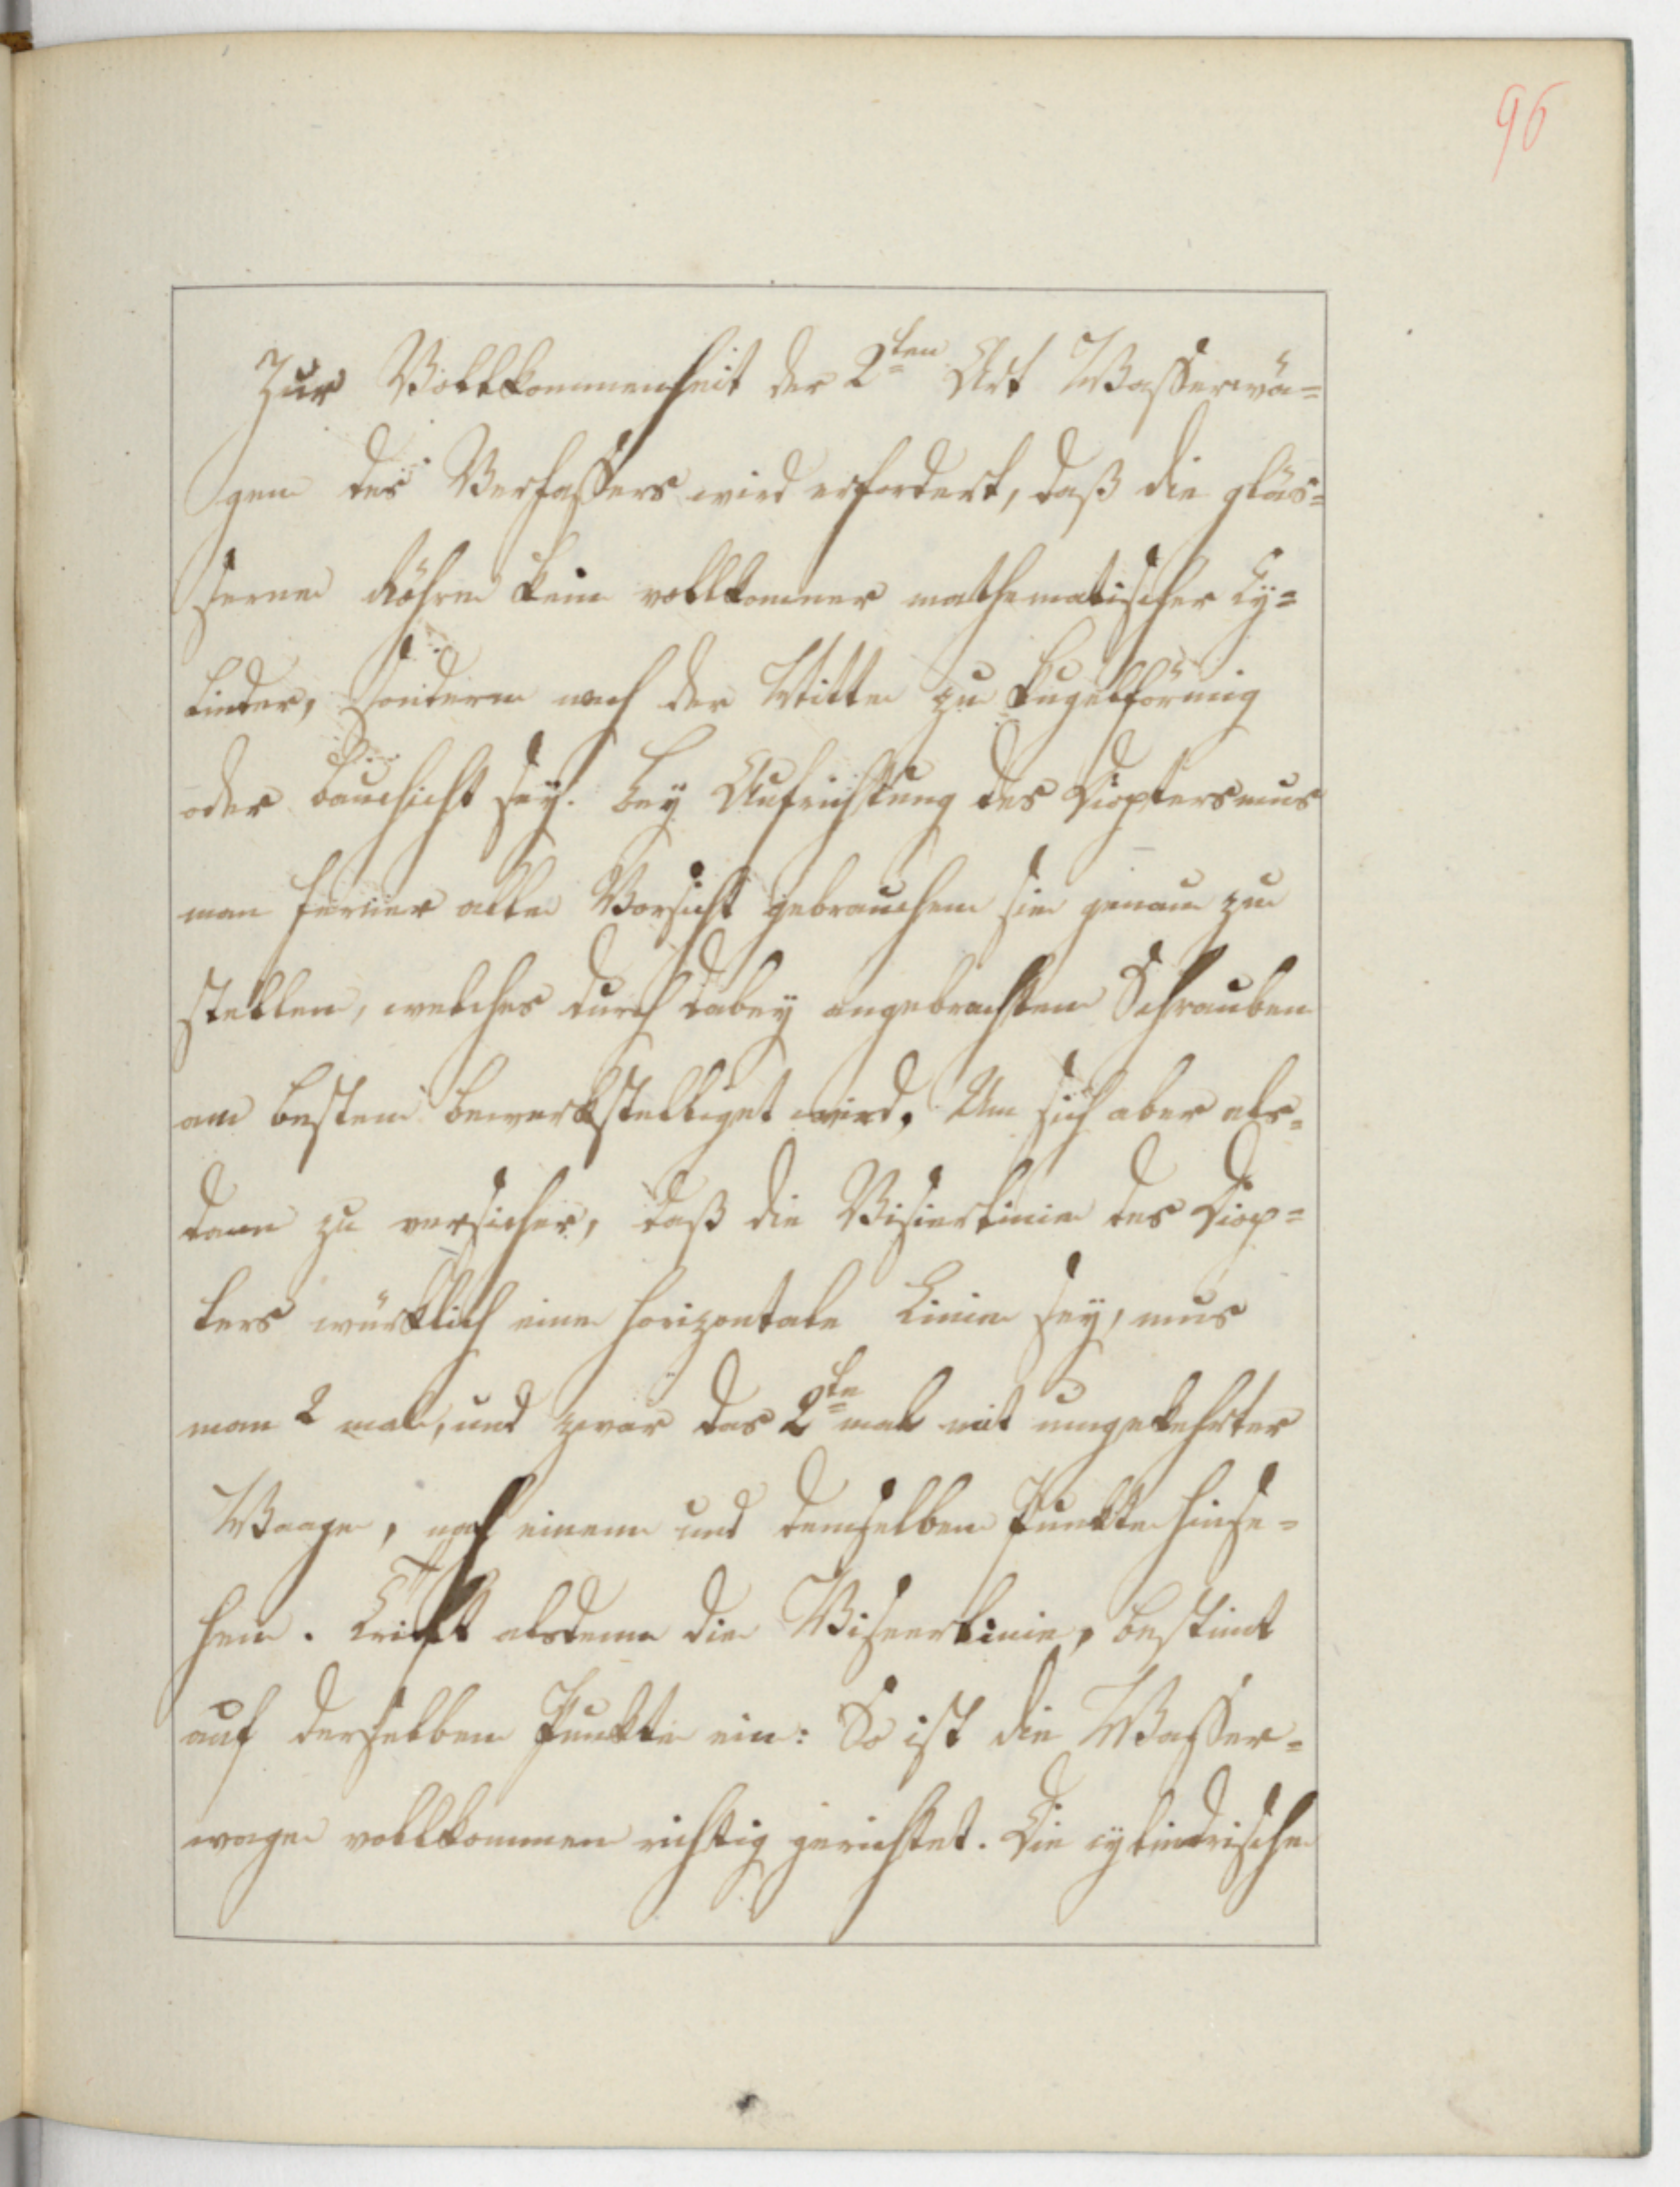 96
Zur Vollkommenheit der 2ten Art Wasserwa=
gen des Verfassers wird erfordert, daß die gläs=
serne Röhre kein vollkomner mathematischer Cy=
linder, sondern nach der Mitte zu kugelförmig
oder bauchicht sey. Bey Aufrichtung des Diopters mus
man ferner alle Vorsicht gebrauchen sie genau zu
stellen, welches durch dabey angebrachten Schrauben
am besten bewerkstelliget wird. Um sich aber als=
dann zu versicher, daß die Visierlinie des Diop=
ters würklich eine horizontale Linie sey, mus
man 2 mal, und zwar das 2te mal mit umgekehrter
Waage, nach einem und demselben Punkte hinse=
hen. Trift alsdenn die Visierlinie, bestimt
auf derselben Punkte ein: So ist die Wasser=
wage vollkommen richtig gerichtet. Die cylindrische